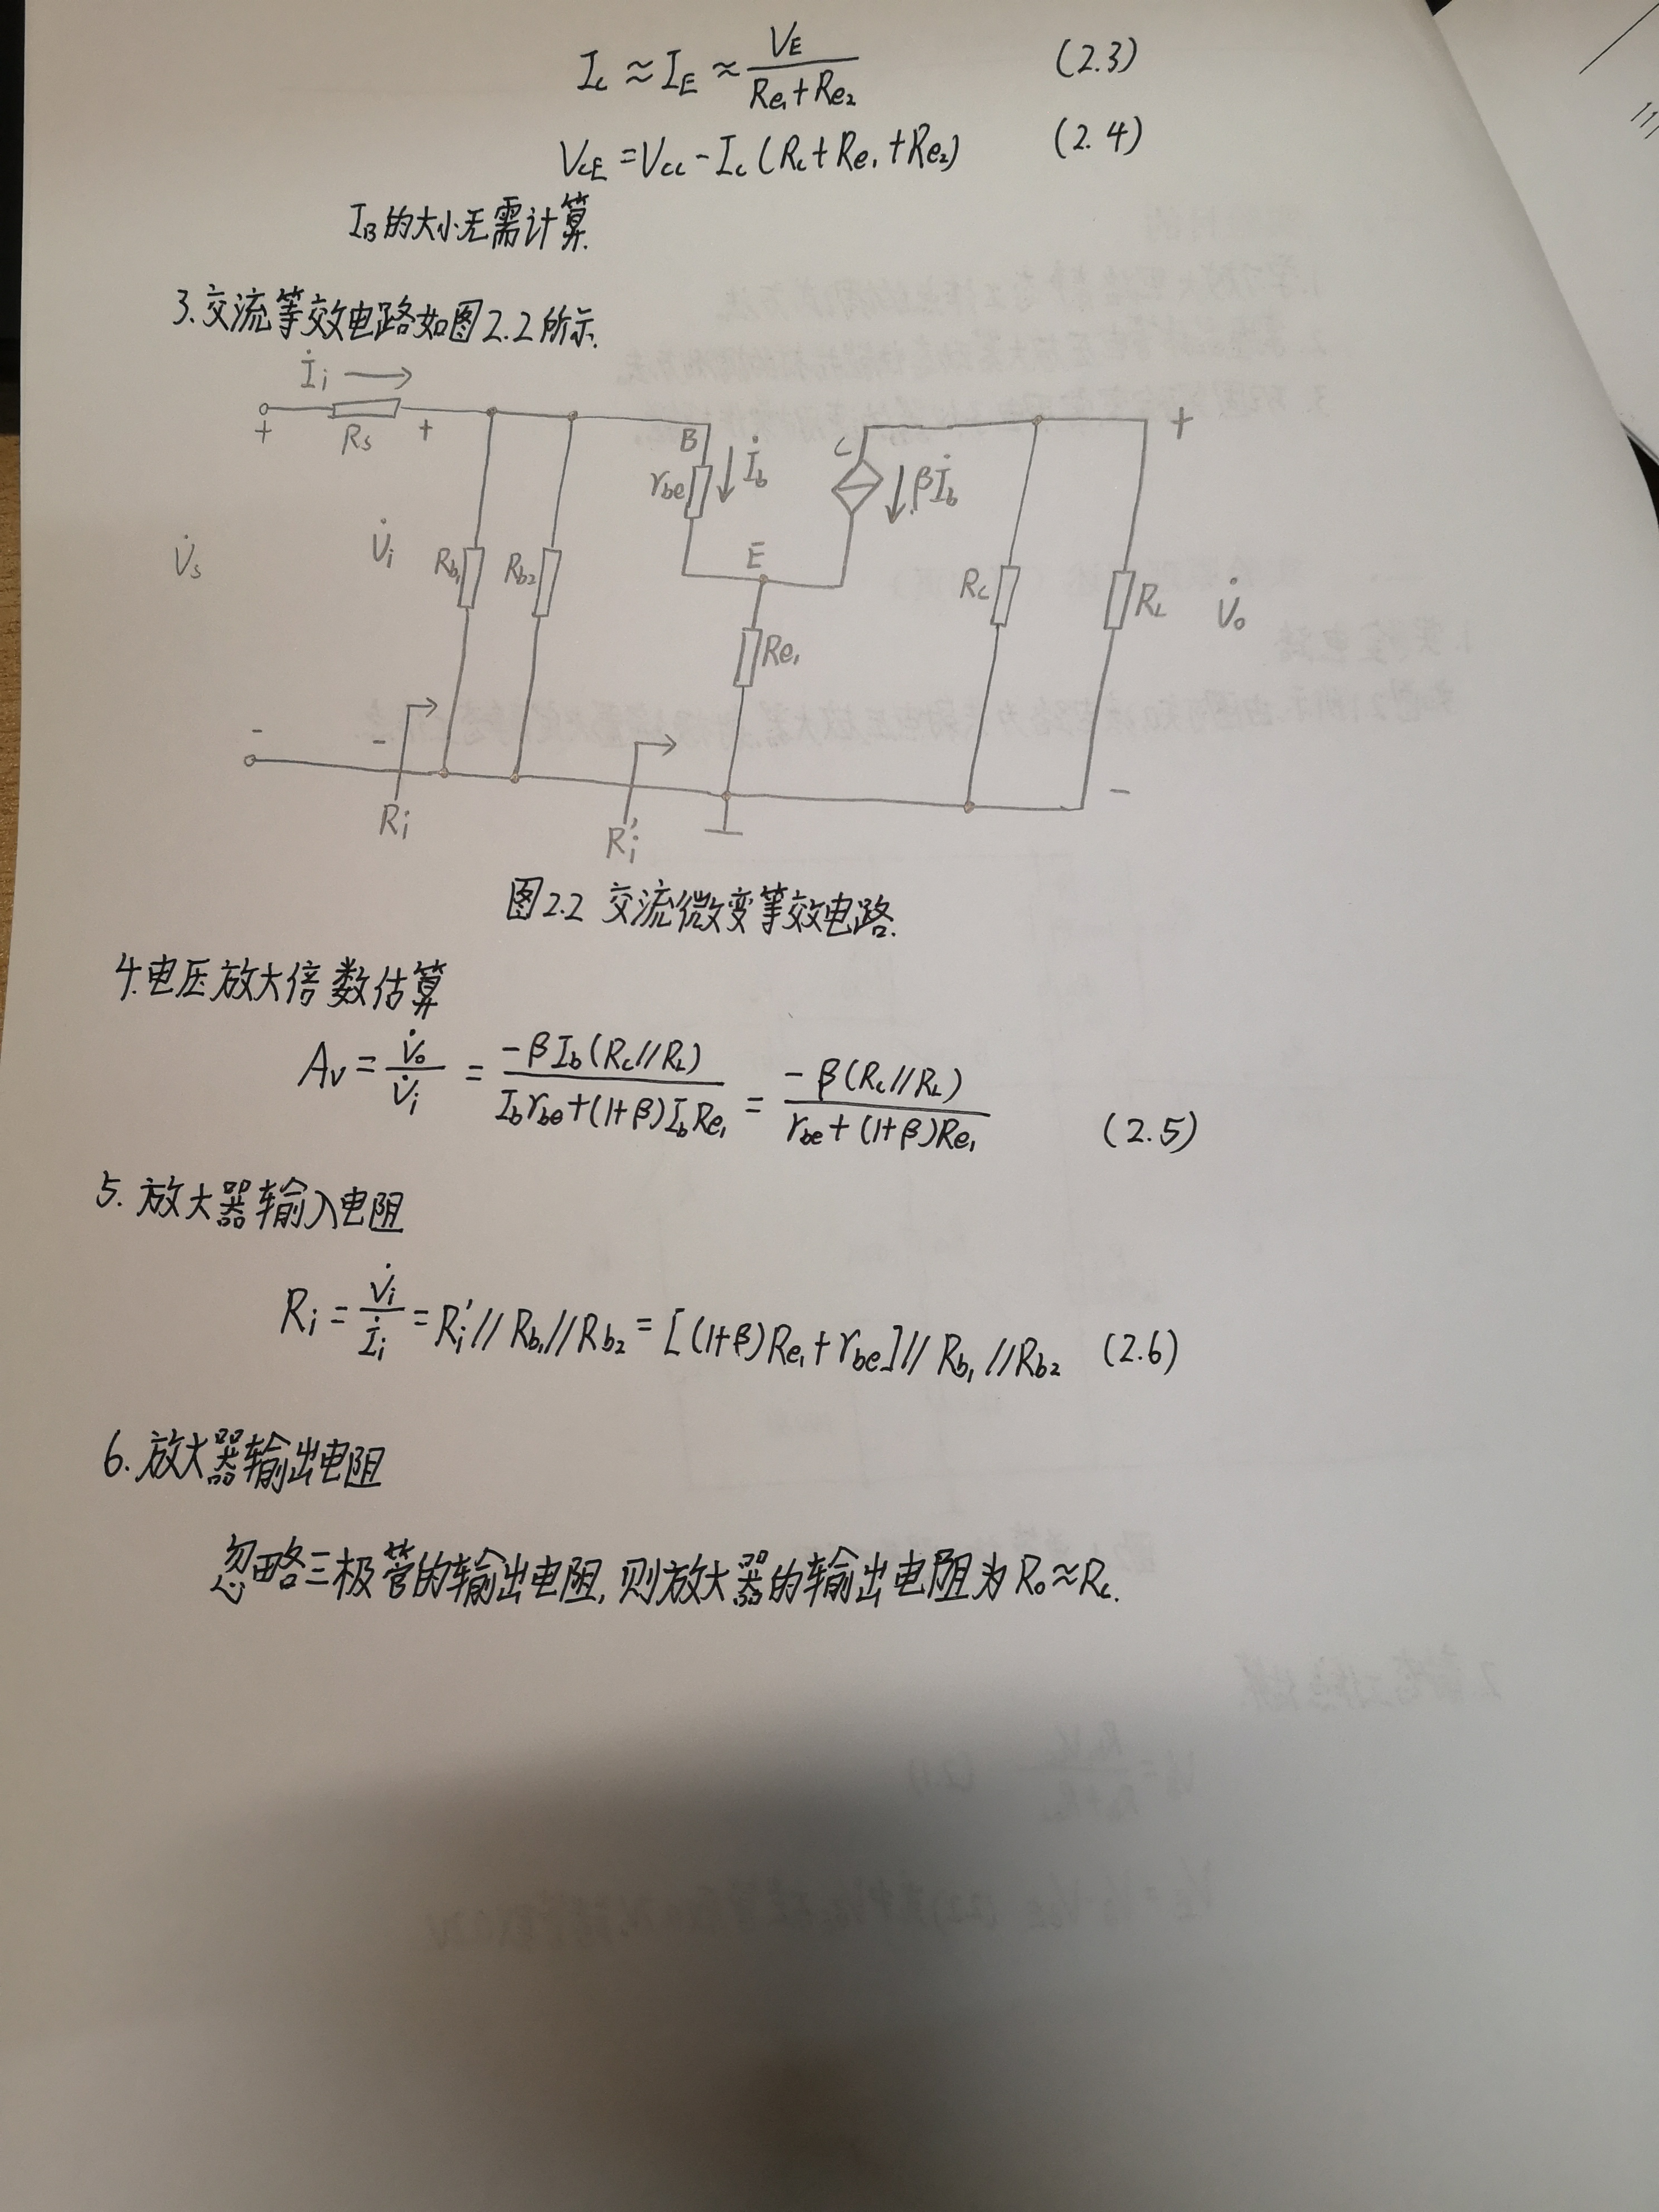 Ic ≈ IE ≈ VE / (Re1+Re2) (2.3)
VCE = Vcc - Ic (Rc + Re1 + Re2) (2.4)
IB的大小无需计算.
3.交流等效电路如图2.2所示.
İi
+ Rs + B rbe İb C βİb +
V̇s V̇i Rb1 Rb2 E Re1 Rc RL V̇o
- - -
Ri Ri'
图2.2 交流微变等效电路.
4.电压放大倍数估算
Av = V̇o / V̇i = -βIb(Rc//RL) / (Ibrbe+(1+β)IbRe1) = -β(Rc//RL) / (rbe+(1+β)Re1) (2.5)
5. 放大器输入电阻
Ri = V̇i / İi = Ri'//Rb1//Rb2 = [(1+β)Re1+rbe]//Rb1//Rb2 (2.6)
6. 放大器输出电阻
忽略三极管的输出电阻,则放大器的输出电阻为Ro≈Rc.